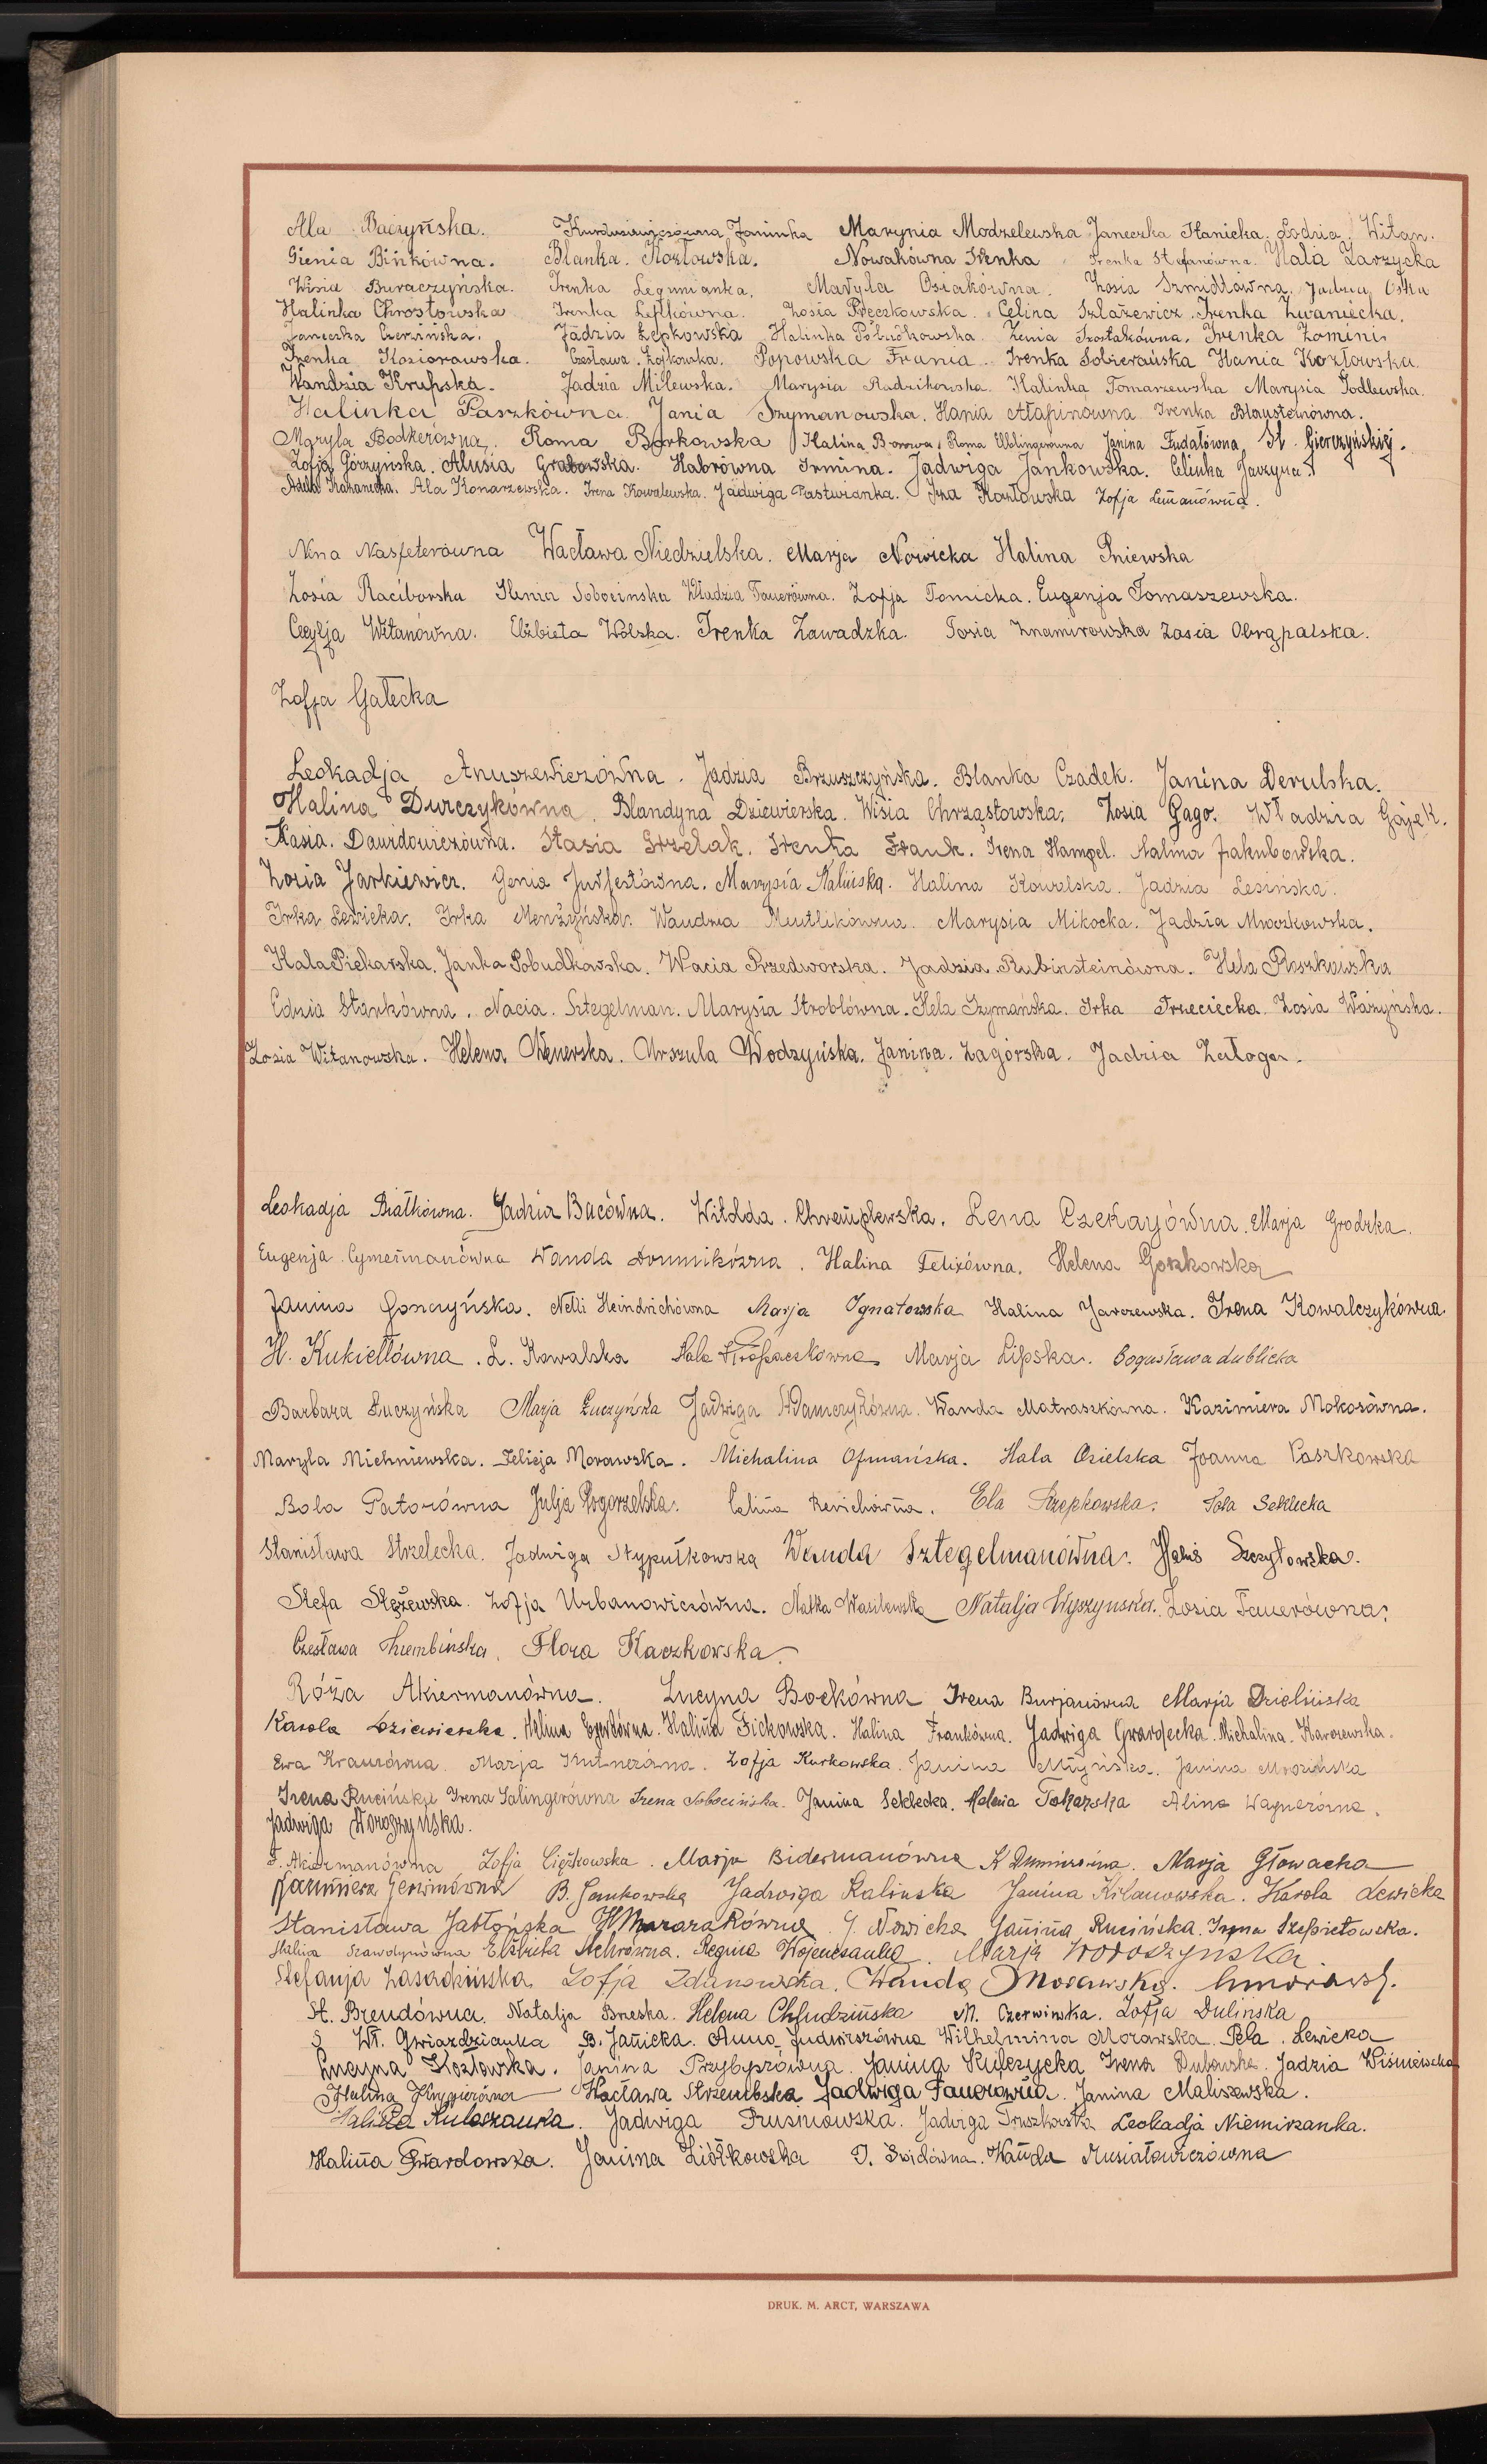 Ala Baczyńska. Janinka Marynia Modzelewska Janeczka Stanicka. Lodzia Witan.
Gienia Bińkówna. Blanka. Kozłowska. Nowakówna Irenka Irenka Stefanówna. Hala Zarzycka
Wisia Buraczyńska. Irenka Legumianka. Maryla Osiakówna. Zosia Szmidtówna. Jadzia
Halinka Chrostowska Irenka Leftkówna. Zosia Pręczkowska. Celina Szlazewicz. Irenka Zwaniecka.
Janeczka Czerwińska. Jadzia Łepkowska Halinka Żenia Szostakówna. Irenka Zomini.
Irenka Kosiorowska. Czesława. Popowska Frania. Irenka Sobierańska Hania Kozłowska.
Wandzia Krupska. Jadzia Milewska. Marysia Radzikowska. Halinka Tomaszewska Marysia Godlewska.
Halinka Paszkówna. Jania Szymanowska. Hania Irenka Blausteinówna.
Maryla Bodkerówna. Roma Borkowska Halina Borowa. Roma Janina Fudałówna.
Zofja Górzyńska. Alusia Grabowska. Habrówna Irmina. Jadwiga Jankowska. Celinka
Ala Konarzewska. Irena Kowalewska. Jadwiga Pastwianka. Iza Kozłowska Zofja Lemanówna.
Nena Nasfeterówna Wacława Niedzielska. Marja Nowicka Halina Pniewska
Zosia Raciborska Henia Sobocinska Władzia Tauerówna. Zofja Tomicka. Eugenja Tomaszewska.
Cecylja Witanówna. Elżbieta Wolska. Irenka Zawadzka. Tosia Znamirowska Zosia Obrąpalska.
Zofja Gałecka
Leokadja Anuszewiczówna. Jadzia Brzuszczyńska. Blanka Czadek. Janina Derulska.
Halina Durczykówna. Blandyna Dziewierska. Wisia Chrząstowska. Zosia Gago. Władzia Gajek.
Kasia. Dawidowiczówna. Stasia Grzelak. Irenka Frank. Irena Hampel. Halina Jakubowska.
Zosia Jarkiewicz. Genia Marysia Kalińska. Halina Kowalska. Jadzia Lesińska.
Irka Lewicka. Irka Menżyńska. Wandzia Mutlikówna. Marysia Mikocka. Jadzia Mroczkowska.
Hala Piekarska. Janka Pobudkowska. Wacia Przedworska. Jadzia Rubinsteinówna. Hela Roszkowska
Edzia Starkówna. Nacia. Sztegelman. Marysia Stroblówna. Hela Szymańska. Irka Trzeciecka. Zosia Ważyńska.
Zosia Witanowska. Helena Wenerska. Urszula Wodzyńska. Janina. Zagórska. Jadzia Załoga.
Leokadja Białkówna. Jadzia Bucówna. Witolda. Chremplewska. Lena Czekayówna. Marja Grodzka.
Eugenja Cymermanówna Wanda Dominikówna. Halina Felixówna. Helena Goszkowska
Janina Gonczyńska. Nelli Heindrichówna Marja Ignatowska Halina Jarczewska. Irena Kowalczykówna.
H. Kukiełłówna. L. Kowalska Hala Marja Lipska. Bogusława Lublicka
Barbara Łuczyńska Marja Łuczyńska Jadwiga Adamczykówna. Wanda Matraszkówna. Kazimiera Mokosówna.
Maryla Michniewska. Felicja Morawska. Michalina Ofmańska. Hala Osielska Joanna Paszkowska
Bola Patorówna Julja Pogorzelska. Ela Szepkowska. Seklecka
Stanisława Strzelecka. Jadwiga Stypułkowska Wanda Sztegelmanówna. Szczytowska.
Stefa Stężewska. Zofja Urbanowiczówna. Natka Wasilewska Natalja Wyszynska. Zosia Tauerówna.
Czesława Flora Kaczkowska.
Róża Akiermanówna. Lucyna Bockówna Irena Burjanówna Marja Dzielińska
Karola Dziewierska. Halina Halina Fickowska. Halina Frankówna. Jadwiga Gwardecka. Michalina. Karczewska.
Ewa Krauzówna. Marja Kutnerówna. Zofja Kurkowska. Janina Młyńska. Janina Mrozińska
Irena Rucińska Irena Salingerówna Irena Sobocińska. Janina Seklecka. Helena Tokarska Alina Wagnerówna.
Jadwiga Woroszyńska.
F. Akiermanówna Zofja Ciężkowska. Marja Bidermanówna K Marja Głowacka
Kazimiera B. Jankowska Jadwiga Kalinska Janina Kilanowska. Karola Lewicka
Stanisława Jabłońska J. Nowicka Janina Rucińska. Irena Szepietowska.
Halina Szawdynówna Elżbieta Regina Marja Woroszyńska
Stefanja Zasadzińska. Zofja Zdanowska. Wanda Morawska.
H. Brendówna. Natalja Breska. Helena Chłudzińska M. Czerwińska. Zofja Dulińska
Wł. Gwiazdzianka B. Janicka. Anna Wilhelmina Morawska. Pela. Lewicka
Lucyna Kozłowska. Janina Przybyszówna. Janina Kulczycka Irena Dubowska. Jadzia Wiśniewska
Halina Wacława Strzembska Jadwiga Tauerówna. Janina Maliszewska.
Jadwiga Prusinowska. Jadwiga Truszkowska Leokadja Niemirzanka.
Halina Gwardowska. Janina Ziółkowska I. Świdówna. Wanda Musiałowiczówna
DRUK. M. ARCT, WARSZAWA